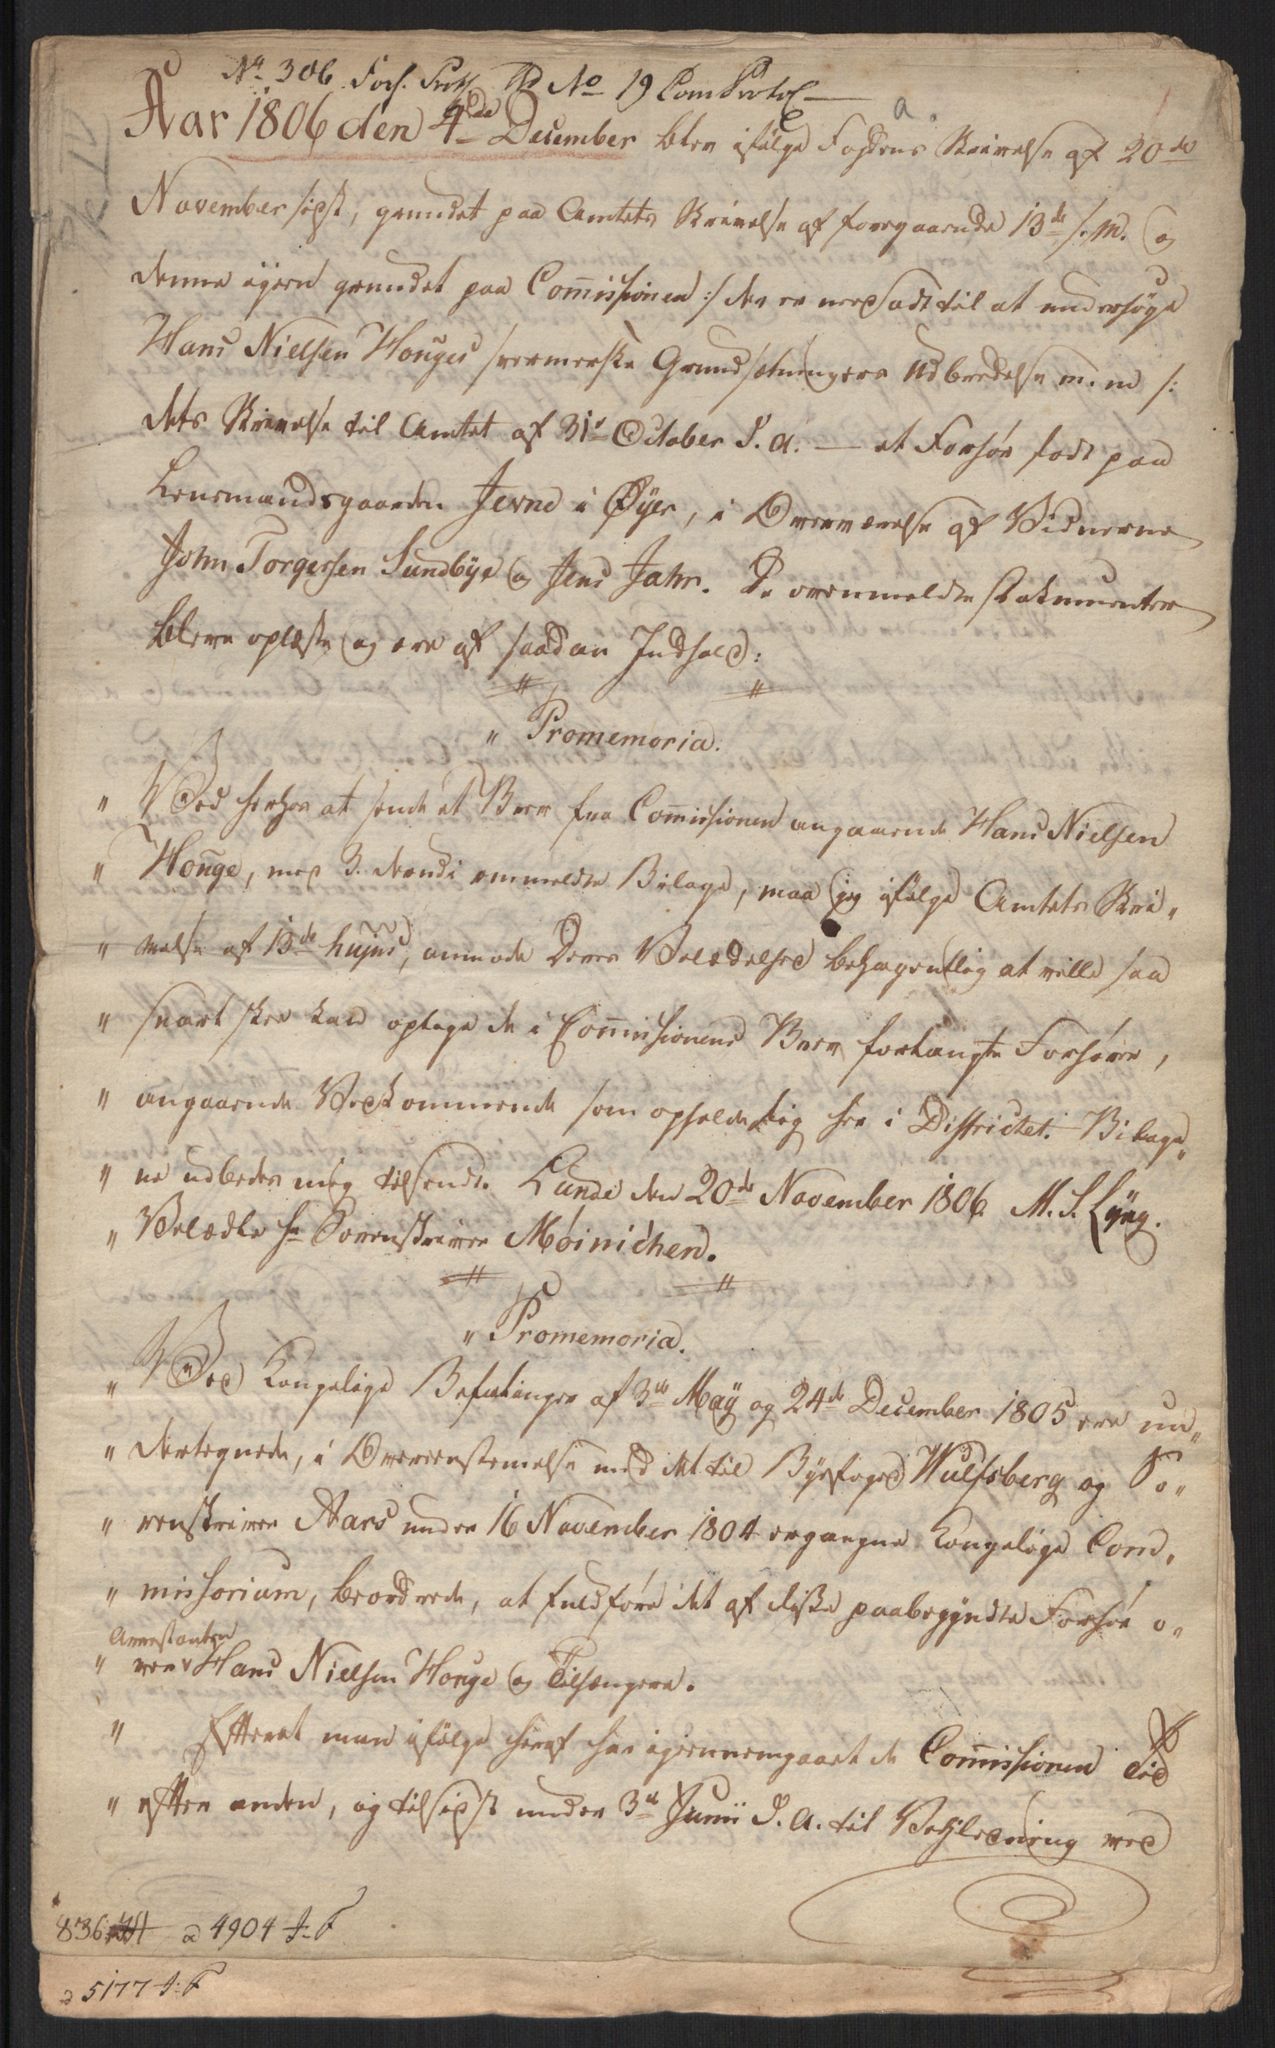 No 306 Forh. Prot. No 19 Com Protol
a.
Aar 1806 den 4de December blev ifølge Fogdens Skrivelse af 20de
November sidst, grundet paa Amtets Skrivelse af foregaaende 13de s. M. og
denne igien grundet paa Commissionen :/ der er nedsadt til at undersøge
Hans Nielsen Houges sværmerske Grundsætningers Udbredelse m. m /:
dets Skrivelse til Amtet af 31te October d. A. — et Forhør sadt paa
Lensmandsgaarden Jevne i Øyer, i Overværelse af Vidnerne
John Torgersen Sundbye og Jens Jahr. De ovenmeldte Dokumenter
bleve oplæste og ere af saadan Indhold:
" Promemoria.
" Ved herhos at sende et Brev fra Commissionen angaaende Hans Nielsen
" Houge, med 3. deri ommeldte Bilage, maa jeg ifølge Amtets Skri„
" velse af 13de hujus, anmode Deres Velædelhed behageligt at ville saa
" snart skee kand optage de i Commissionens Brev forlangte Forhører,
" angaaende Vedkommende som opholde sig her i Districtet. Bilage„
" ne udbedes mig tilsendt. Lunde den 20de November 1806. M. S. Lyng.
" Velædle Hr Sorenskriver Møinichen.
" Promemoria.
" Ved Kongelige Befalinger af 3die May og 24de December 1805 ere un„
" dertegnede, i Overeenstemelse med det til Byefoged Wulfsberg og So„
" renskriver Aars under 16 November 1804 ergangne Kongelige Com„
" missorium, beordrede, at fuldføre det af disse paabegyndte Forhør o„
Arrestanten
" ver Hans Nielsen Houge og Tilhængere.
" Efterat man ifølge heraf har igiennemgaaet de Commissionen Tid
" efter anden, og tilsidst under 3die Junii d. A. til Veiledning ved
836 a 4904 J: F
a 5177 J: F